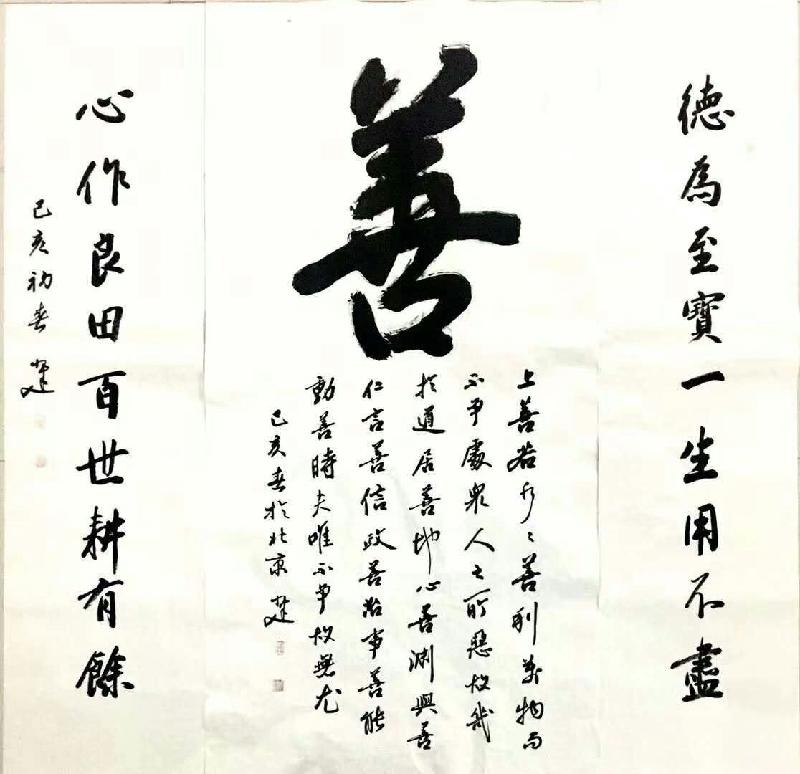 德為至寶一生用不盡
善
上善若水〻善利萬物而
不爭處眾人之所惡故幾
於道居善地心善淵與善
仁言善信政善治事善能
動善時夫唯不爭故無尤
己亥春於北京
心作良田百世耕有餘
己亥初春